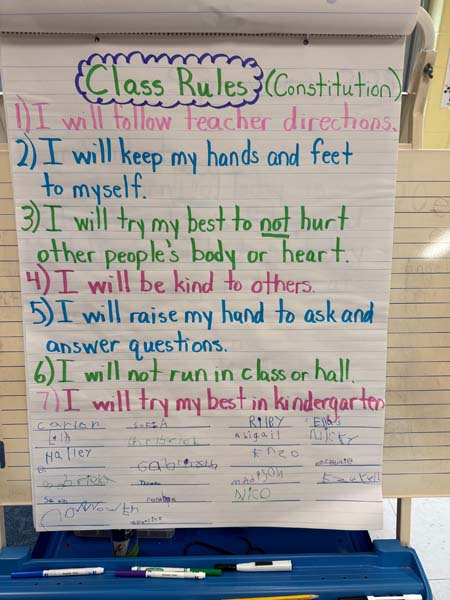 Class Rules (Constitution)
1) I will follow teacher directions.
2) I will keep my hands and feet
to myself.
3) I will try my best to not hurt
other people's body or heart.
4) I will be kind to others.
5) I will raise my hand to ask and
answer questions.
6) I will not run in class or hall.
7) I will try my best in kindergarten
RILEY
Abigail NICKY
Hailey ENZO
NICO